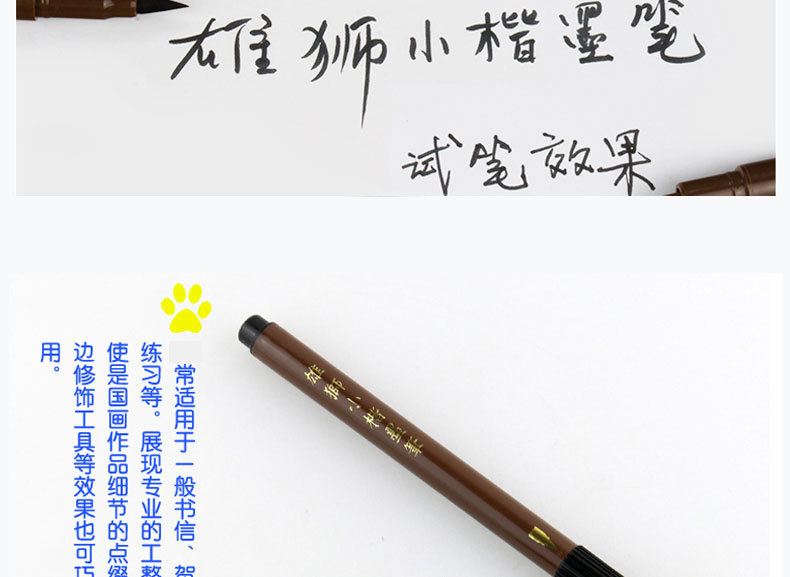 雄狮小楷墨笔
试笔效果
常适用于一般书信、贺
练习等。展现专业的工整
使是国画作品细节的点缀
边修饰工具等效果也可巧
用。
雄獅小楷墨筆